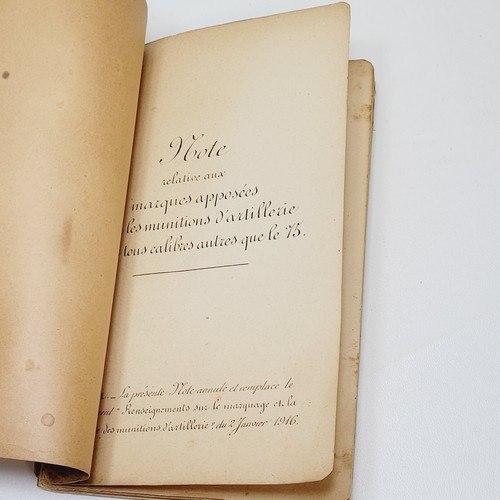 Note
relative aux
marques apposées
les munitions d'artillerie
tous calibres autres que le 75.
La présente Note annule et remplace le
Renseignements sur le marquage et la
des munitions d'artillerie", du 2 Janvier 1916.